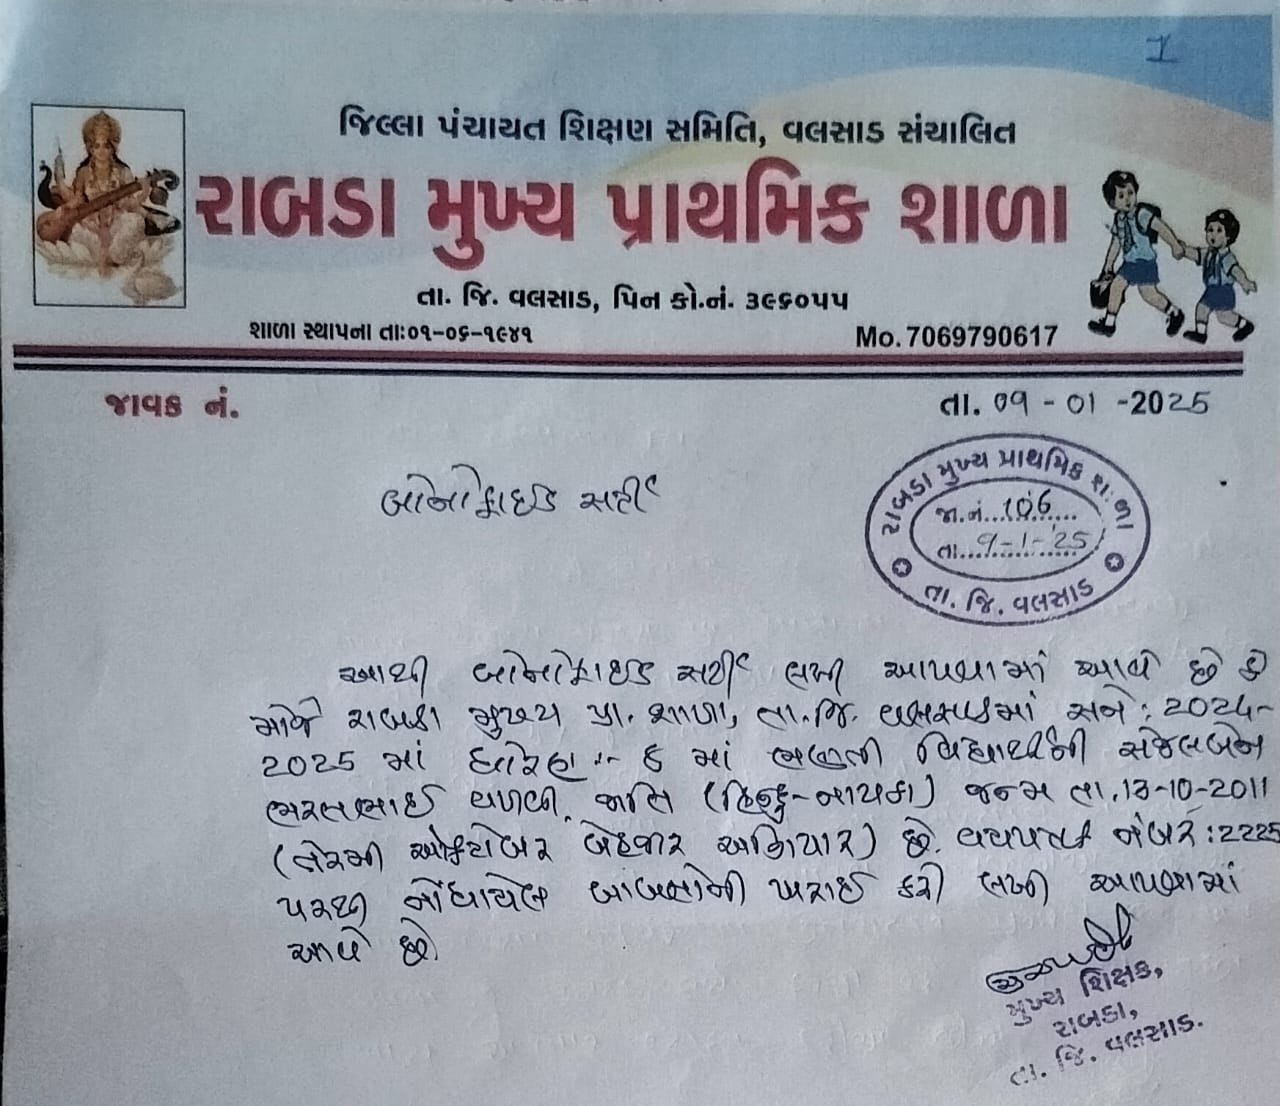 1
જિલ્લા પંચાયત શિક્ષણ સમિતિ, વલસાડ સંચાલિત
રાબડા મુખ્ય પ્રાથમિક શાળા
તા. જિ. વલસાડ, પિન કો.નં. ૩૯૬૦૫૫
શાળા સ્થાપના તાઃ૦૧-૦૬-૧૯૪૧ Mo. 7069790617
જાવક નં. તા. ૦૧ - 01 -2025
બોનોફાઇડ સર્ટી
રાબડા મુખ્ય પ્રાથમિક શાળા
જા.નં...106......
તા...9-1-'25
તા. જિ. વલસાડ
આથી બોનોફાઇડ સર્ટી લખી આપવામાં આવે છે કે
મોજે રાબડા મુખ્ય પ્રા. શાળા, તા.જિ. વલસાડમાં સને : 2024-
2025 માં ધોરણ :- ૬ માં ભણતી વિદ્યાર્થીની સેજલબેન
ભરતભાઈ જાતિ (હિન્દુ-નાયકા) જન્મ તા. 13-10-2011
(તેરમી ઓક્ટોબર બેહજાર અગિયાર) છે. વયપત્રક નંબર : 2225
પરથી નોંધાયેલ બાબતોની ખરાઈ કરી લખી આપવામાં
આવે છે.
મુખ્ય શિક્ષક,
રાબડા,
તા. જિ. વલસાડ.